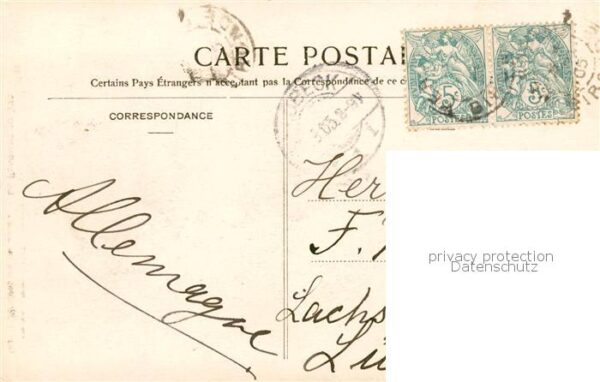 CARTE POSTA
Certains Pays Étrangers n'acceptant pas la Correspondance de ce c
CORRESPONDANCE
5c 5c
POSTES POSTES
Allemagne
Her
F.
Lachs
Lü
privacy protection
Datenschutz